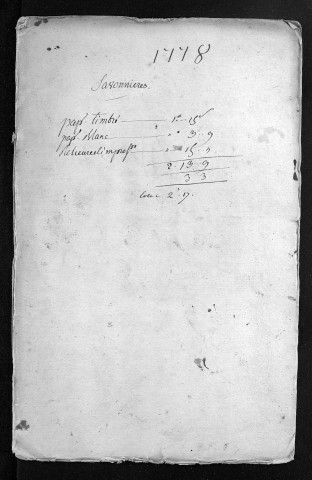 1778
Savonnières.
pap.r timbré — 1.tt 15.s
pap.r blanc — " 3. 9
relieure et impress.on — " 15. "
2. 13. 9
3 3
2. 17.